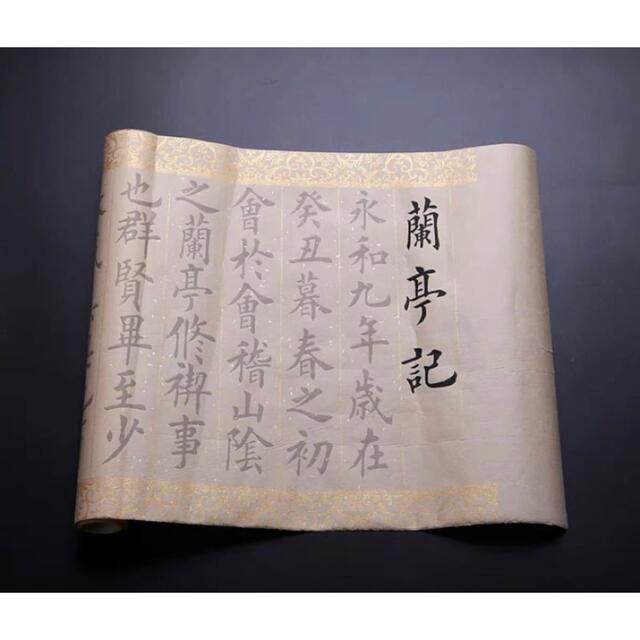 蘭亭記
永和九年歲在
癸丑暮春之初
會於會稽山陰
之蘭亭修禊事
也群賢畢至少